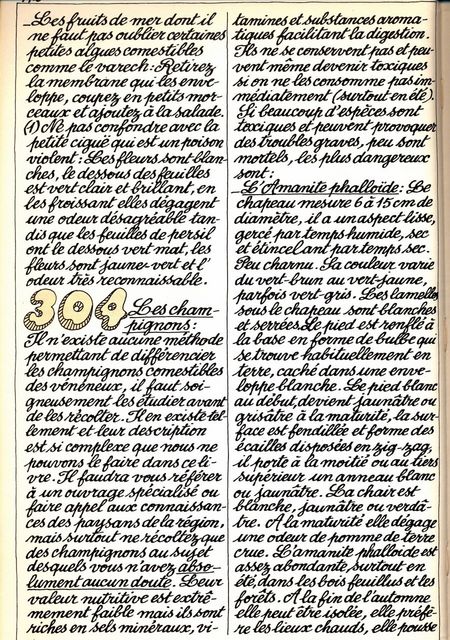 Les fruits de mer dont il
ne faut pas oublier certaines
petites algues comestibles
comme le varech: Retirez
la membrane qui les enve-
loppe, coupez en petits mor-
ceaux et ajoutez à la salade.
(1) Ne pas confondre avec la
petite ciguë qui est un poison
violent: Les fleurs sont blan-
ches, le dessous des feuilles
est vert clair et brillant, en
les froissant elles dégagent
une odeur désagréable tan-
dis que les feuilles de persil
ont le dessous vert mat, les
fleurs sont jaune-vert et l'
odeur très reconnaissable.
304 Les cham-
pignons:
Il n'existe aucune méthode
permettant de différencier
les champignons comestibles
des vénéneux, il faut soi-
gneusement les étudier avant
de les récolter. Il en existe tel-
lement et leur description
est si complexe que nous ne
pouvons le faire dans ce li-
vre. Il faudra vous référer
à un ouvrage spécialisé ou
faire appel aux connaissan-
ces des paysans de la région,
mais surtout ne récoltez que
des champignons au sujet
desquels vous n'avez abso-
lument aucun doute. Leur
valeur nutritive est extrê-
mement faible mais ils sont
riches en sels minéraux, vi-
tamines et substances aroma-
tiques facilitant la digestion.
Ils ne se conservent pas et peu-
vent même devenir toxiques
si on ne les consomme pas im-
médiatement (surtout en été).
Si beaucoup d'espèces sont
toxiques et peuvent provoquer
des troubles graves, peu sont
mortels, les plus dangereux
sont:
L'Amanite phalloïde: Le
chapeau mesure 6 à 15 cm de
diamètre, il a un aspect lisse,
gercé par temps humide, sec
et étincelant par temps sec.
Peu charnu. Sa couleur varie
du vert-brun au vert-jaune,
parfois vert-gris. Les lamelles
sous le chapeau sont blanches
et serrées. Le pied est renflé à
la base en forme de bulbe qui
se trouve habituellement en
terre, caché dans une enve-
loppe blanche. Le pied blanc
au début, devient jaunâtre ou
grisâtre à la maturité, la sur-
face est fendillée et forme des
écailles disposées en zig-zag,
il porte à la moitié ou au tiers
supérieur un anneau blanc
ou jaunâtre. La chair est
blanche, jaunâtre ou verdâ-
tre. A la maturité elle dégage
une odeur de pomme de terre
crue. L'amanite phalloïde est
assez abondante, surtout en
été, dans les bois feuillus et les
forêts. A la fin de l'automne
elle peut être isolée, elle préfè-
re les lieux chauds, elle pousse